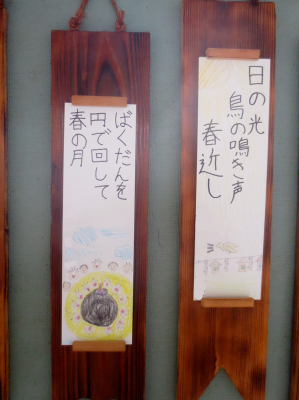 日の光
鳥の鳴き声
春近し
ばくだんを
円で回して
春の月